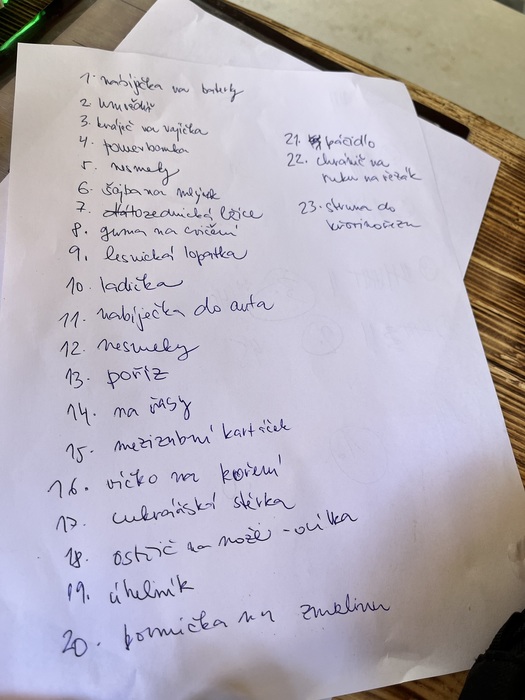 1. nabíječka na baterky
2.
3. kráječ na vajíčka
4. powerbanka
5. nesmeky
6. šajba na mlýnek
7. zednická lžíce
8. guma na cvičení
9. lesnická lopatka
10. ladička
11. nabíječka do auta
12. nesmeky
13. poříz
14. na řasy
15. mezizubní kartáček
16. víčko na koření
17. cukrářská stěrka
18. ostřič na nože - ocílka
19. úhelník
20. formička na zmrzlinu
21. pácidlo
22. chránič na
ruku na řezák
23. struna do
křovinořezu